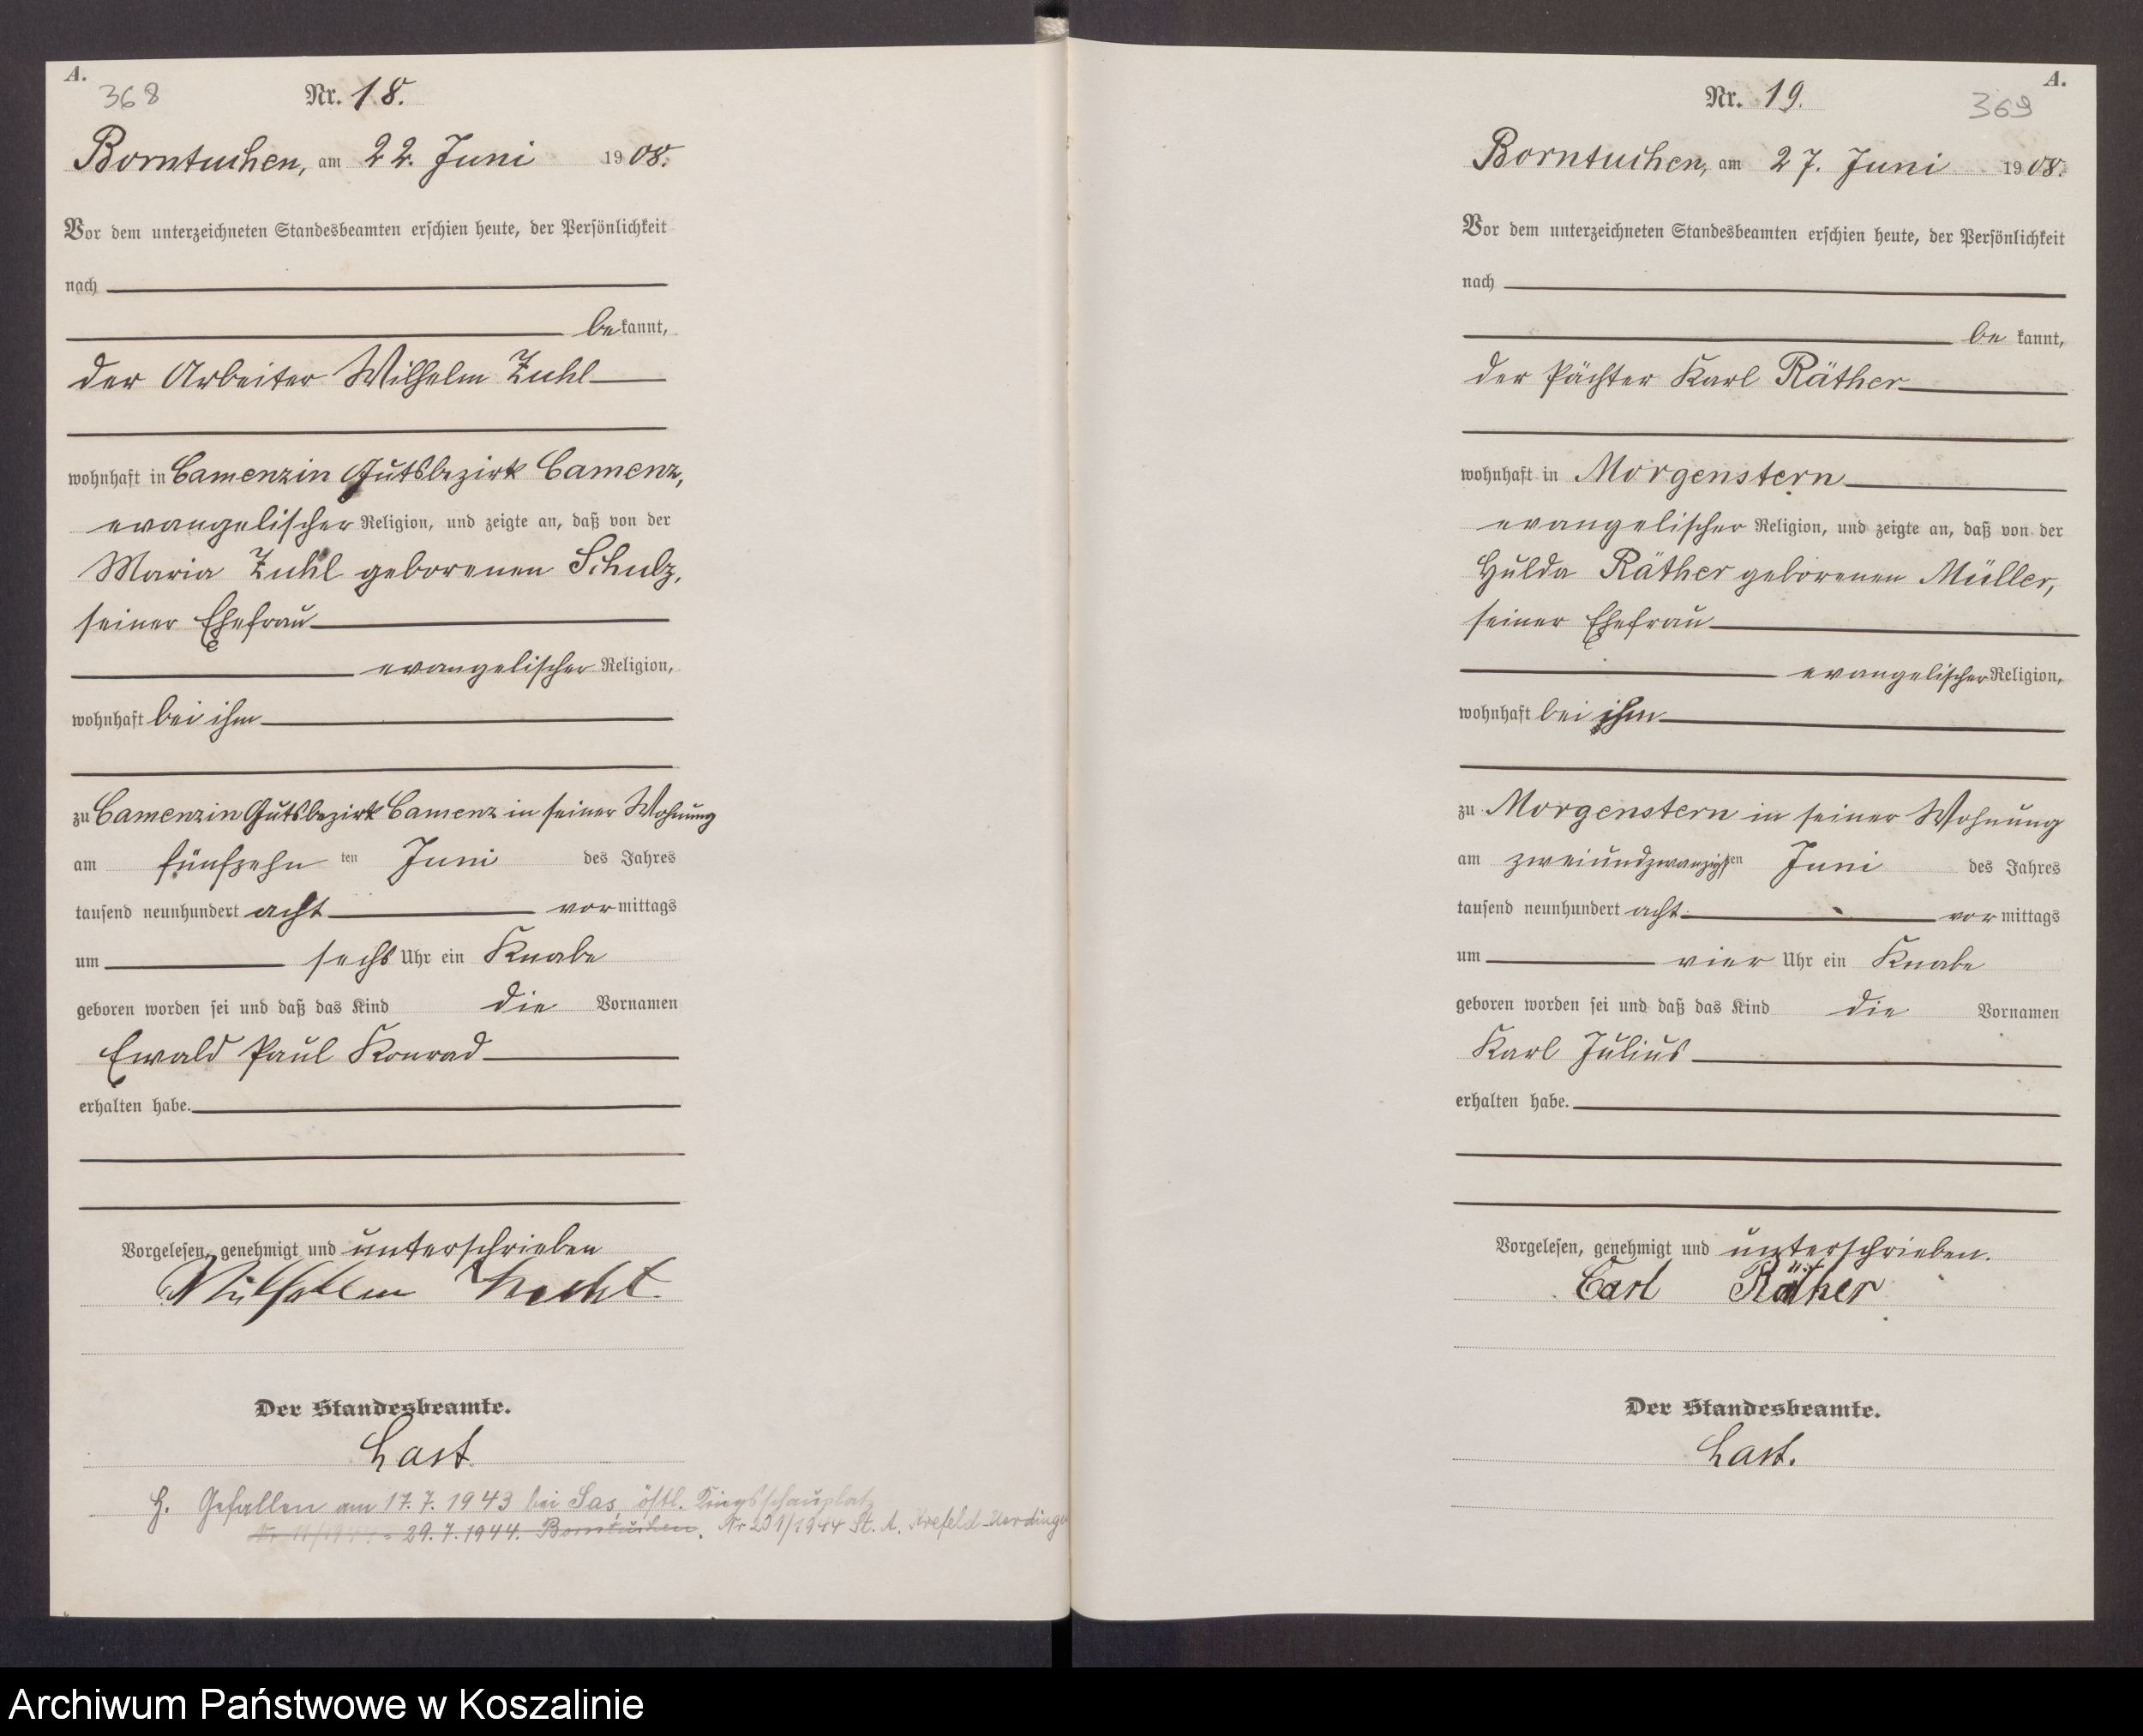 A.
368
Nr. 18.
Borntuchen, am 22. Juni 1908.
Vor dem unterzeichneten Standesbeamten erschien heute, der Persönlichkeit
nach
bekannt,
der Arbeiter Wilhelm Zuhl
wohnhaft in Camenzin Gutsbezirk Camenz,
evangelischer Religion, und zeigte an, daß von der
Maria Zuhl geborenen Schulz,
seiner Ehefrau
evangelischer Religion,
wohnhaft bei ihm
zu Camenzin Gutsbezirk Camenz in seiner Wohnung
am fünfzehn ten Juni des Jahres
tausend neunhundert acht vormittags
um sechs Uhr ein Knabe
geboren worden sei und daß das Kind die Vornamen
Ewald Paul Konrad
erhalten habe.
Vorgelesen, genehmigt und unterschrieben
Der Standesbeamte.
Last.
H. Gefallen am 17.7.1943 bei Sas, östl. Kriegsschauplatz
29.7.1944. Borntuchen. Nr 201/1944 St. A. Krefeld-Uerdingen
A.
369
Nr. 19.
Borntuchen, am 27. Juni 1908.
Vor dem unterzeichneten Standesbeamten erschien heute, der Persönlichkeit
nach
be kannt,
der Pächter Karl Räther
wohnhaft in Morgenstern
evangelischer Religion, und zeigte an, daß von der
Hulda Räther geborenen Müller,
seiner Ehefrau
evangelischer Religion,
wohnhaft bei ihm
zu Morgenstern in seiner Wohnung
am zweiundzwanzigsten Juni des Jahres
tausend neunhundert acht vormittags
um vier Uhr ein Knabe
geboren worden sei und daß das Kind die Vornamen
Karl Julius
erhalten habe.
Vorgelesen, genehmigt und unterschrieben.
Carl Räther
Der Standesbeamte.
Last.
Archiwum Państwowe w Koszalinie